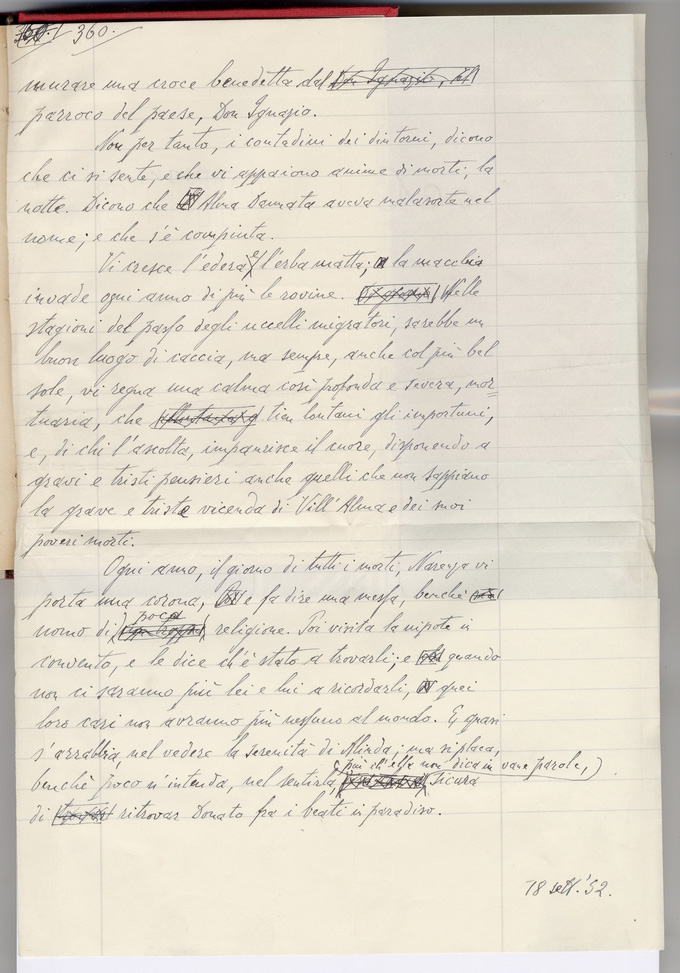 360.
murare una croce benedetta dal Don Ignazio, il
parroco del paese, Don Ignazio.
Non per tanto, i contadini dei dintorni, dicono
che ci si sente, e che vi appaiono anime di morti, la
notte. Dicono che Alma Dannata aveva malasorta nel
nome; e che s'è compiuta.
Vi cresce l'edera e l'erba matta; la macchia
invade ogni anno di più le rovine. Nelle
stagioni del passo degli uccelli migratori, sarebbe un
buon luogo di caccia, ma sempre, anche col più bel
sole, vi regna una calma così profonda e severa, mor=
tuaria, che tien lontani gli importuni,
e, di chi l'ascolta, impaurisce il cuore, disponendo a
gravi e tristi pensieri anche quelli che non sappiano
la grave e triste vicenda di Vill'Alma e dei suoi
poveri morti.
Ogni anno, il giorno di tutti i morti, Narenza vi
porta una corona, e fa dire una messa, benchè
uomo di poca religione. Poi visita la nipote in
convento, e le dice ch'è stato a trovarli; e quando
non ci saranno più lei e lui a ricordarli, quei
loro cari non avranno più nessuno al mondo. E quasi
s'arrabbia, nel vedere la serenità di Alinda; ma si placa,
benchè poco n'intenda, nel sentirla, (più ch'ella non dica in vane parole,) sicura
di ritrovar Donato fra i beati in paradiso.
18 sett. '52.